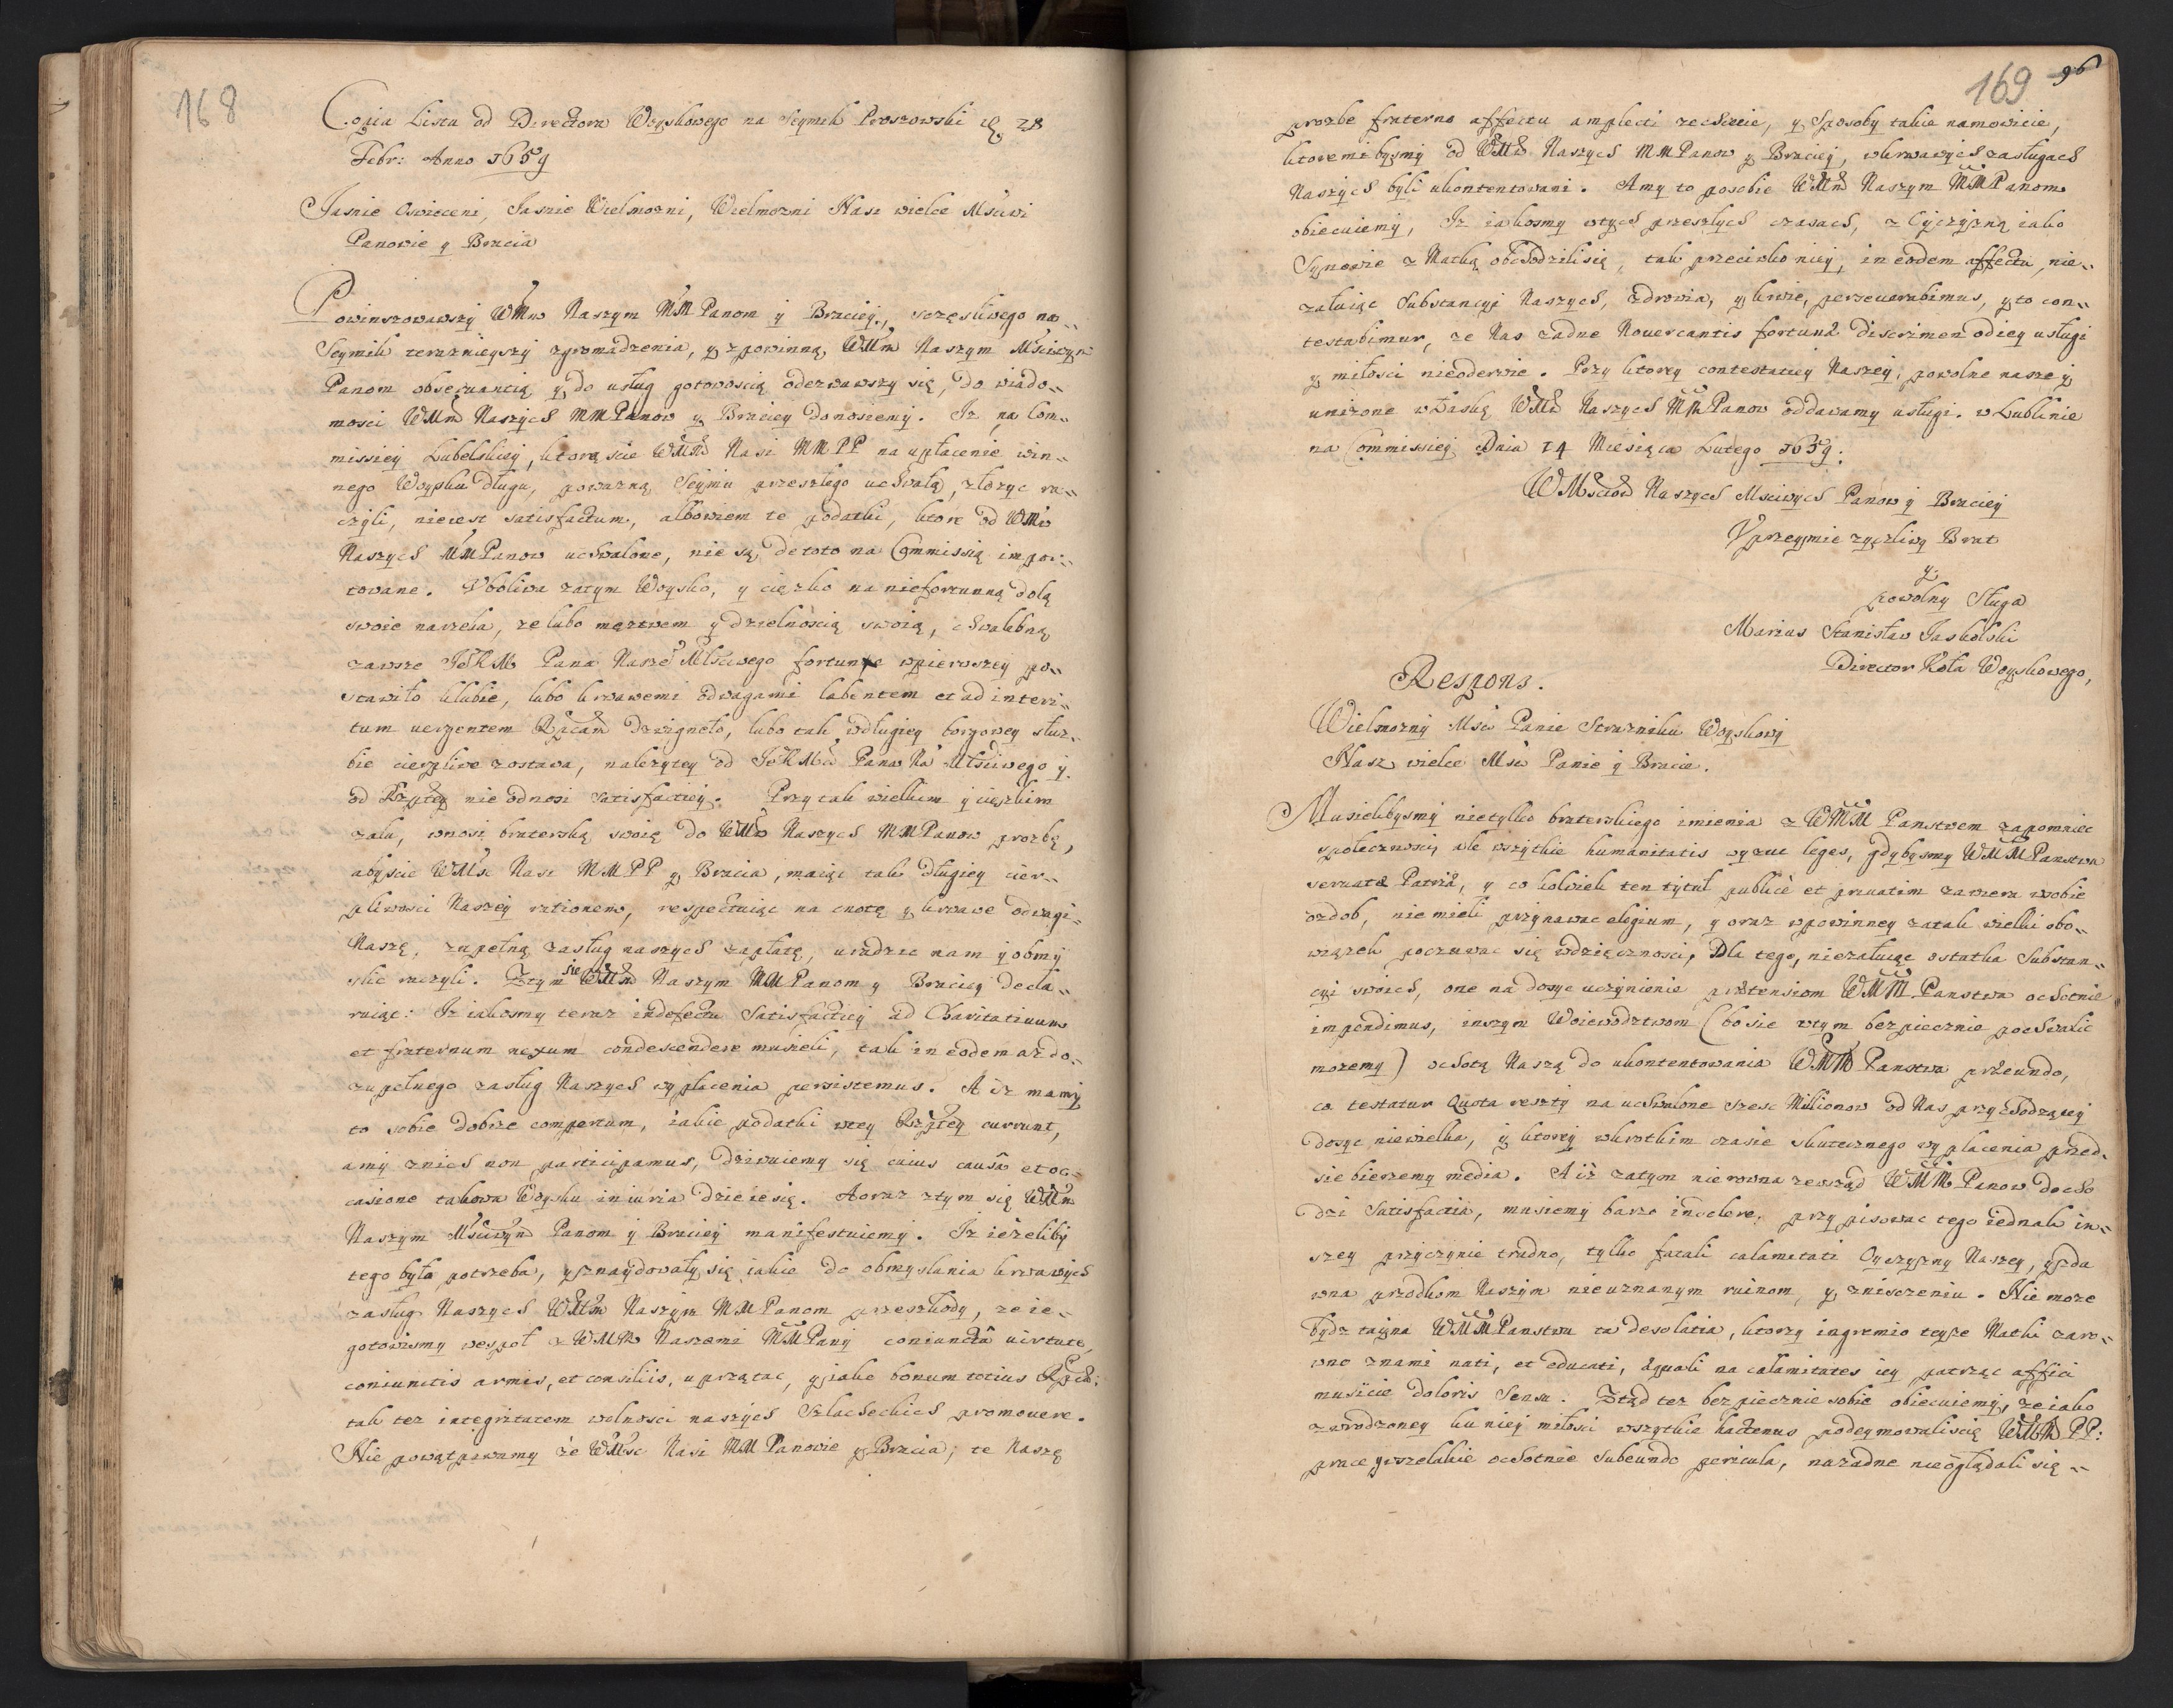 168
Copia Listu od Directora Woyskowego na Seymik Proszowski 28
Febr: Anno 1659
Jasnie Oswieceni, Jasnie Wielmozni, Wielmozni Nasi wielce Msciwi
Panowie y Bracia
Powinszowawszy WMw Naszym MM Panom y Braciey, szczęsliwego na
Seymik teraznieyszy zgromadzenia, y zpowinną, WMw Naszym Msciwym
Panom obserwantią y do usług gotowoscią odezwawszy się, do wiado=
mosci WMw Naszych MM Panow y Braciey donosiemy. Iz na Com=
missiey Lubelskiey, ktorą scie WMw Nasi MM PP na upłacenie win=
nego Woysku długu, powazną Seymu przeszłego uchwałą, złozyc ra=
czyli, nieiest satisfactum, albowiem te podatki, ktore od WMw
Naszych MM Panow uchwalone, nie są, de toto na Commissią impor=
towane. Vboliwa zatym Woysko, y cięzko na niefortunną dolą
swoie narzeka, ze lubo męztwem y dzielnoscią swoią, chwalebną
zawsze JeKM Pana Nasze Msciwego fortunę wpierwszey po=
stawiło klubie, lubo krwawemi odwagami labentem et ad interi=
tum uergentem Rpcam dzwigneło, lubo tak wdługiey borgowey słuz=
bie cierpliwe zostawa, nalezytey od JeKMci Pana Na Msciwego y
od Rzptey nie odnosi satisfactiey. Przy tak wielkim y cięzkim
zalu, wnosi braterską swoię do WMw Naszych MM Panow prozbę,
abyscie WMsc Nasi MM PP y Bracia, maiąc tak długiey cier=
pliwosci Naszey rationem, respectuiąc na cnotę y krwawe odwagi
Naszę, zupełną zasług naszych zapłatę, uradzic nam y obmy
slic raczyli. Ztym się WMw Naszym MM Panom y Braciey decla=
ruiąc: Iz iakosmy teraz indefectu Satisfactiey ad Charitatiuum
et fraternum nexum condescendere musieli, tak in eodem az do
zupełnego zasług Naszych wypłacenia persistemus. A iz mamy
to sobie dobrze compertum, iakie podatki wtey Rzptey currunt,
a my znich non participamus, dziwuiemy się cuius causâ et oc=
casione takowa Woysku iniuria dzieie się. A oraz ztym się WMw
Naszym Msciwym Panom y Braciey manifestuiemy. Iz iezeliby
tego była potrzeba, y znaydowały się iakie do obmyslania krwawych
zasług Naszych WMw Naszym MM Panom przeszkody, ze ie=
gotowismy wespoł z WMM Naszemi MM Pany coniunctâ uirtute,
coniunctis armis, et consiliis, uprzątac, y iako bonum totius Rpcae:
tak tez integritatem wolnosci naszych Szlacheckich promouere.
Nie powątpiwamy ze WMsc Nasi MM Panowie y Bracia, te Naszę
169 96
prozbe fraterno affectu amplecti zechcecie, y Sposoby takie namowicie,
ktoremibysmy od WMw Naszych MM Panow y Braciey, wkrwawych zasługach
Naszych byli ukontentowani. A my to po sobie WMw Naszym MM Panom
obiecuiemy, Iz iakosmy wtych przeszłych czasach, z Oyczyzną iako
Synowie z Matką obchodzili się, tak przeciwko niey, in eodem affectu, nie=
załuiąc Substancyi Naszych, zdrowia, y krwie, perseuerabimus, y to con=
testabimur, ze Nas zadne Nouercantis fortunae discrimen od iey usługi
y miłosci nieoderwie. Przy ktorey contestatiey Naszey, powolne nasze y
unizone właskę WMw Naszych MM Panow oddawamy usługi. w Lublinie
na Commissiey Dnia 14 Miesiąca Lutego 1659:
WMsciow Naszych Msciwych Panow y Braciey
Vprzeymie zyczliwy Brat
y
powolny Sługa
Marius Stanisław Jaskolski
Director Koła Woyskowego,
Respons.
Wielmozny Msci Panie Strazniku Woyskowy
Nasz wielce Msci Panie y Bracie.
Musielibysmy nietylko braterskiego imienia z WMM Panstwem zapomniec
społecznosci, ale wszytkie humanitatis wyzuc leges, gdybysmy WMM Panstwu
seruatae Patriae, y co kolwiek ten tytuł publicè et priuatim zawiera wsobie
ozdob, nie mieli przynawac elogium, y oraz wpowinney zatak wielki obo=
wiązek poczuwac się wdzięcznosci, Dla tego, niezałuiąc ostatka Substan=
cyi swoich, one na dosyc uczynienie praetensiom WMM Panstwa ochotnie
impendimus, inszym Woiewodztwom (bo się wtym bezpiecznie pochwalic
mozemy) ochotą Naszą do ukontentowania WMM Panstwa praeeundo,
co testatur Quota reszty na uchwalone szesc Millionow od Nas przychodzącey
dosyc niewielka, y ktorey wkrotkim czasie skutecznego wypłacenia przed=
siebierzemy media. A iz zatym nierowna zewsząd WMM Panow docho
dzi Satisfactia, musiemy barzo indolere, przypisowac tego iednak in=
szey przyczynie trudno, tylko fatali calamitati Oyczyzny Naszey, y zda
wna przodkom Naszym nieuznanym ruinom, y zniszczeniu. Nie moze
bydz tayna WMM Panstwu ta desolatia, ktorzy ingremio teyze Matki zaro=
wno znami nati, et educati, aequali na calamitates iey patrząc affici
musicie doloris Sensu. Ztąd tez bezpiecznie sobie obiecuiemy, ze iako
zwrodzoney ku niey miłosci wszytkie hactenus podeymowaliscię WMM PP:
prace y wszelakie ochotnie Subeundo pericula, nazadne nieoglądali się =